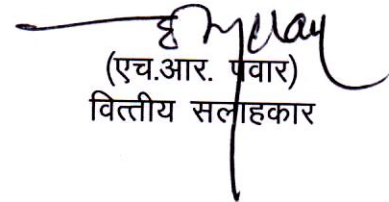 (एच.आर. पंवार)
वित्तीय सलाहकार